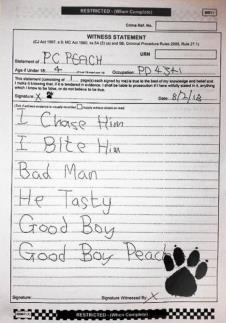 RESTRICTED - (When Complete)
MG11
Crime Ref. No.
WITNESS STATEMENT
(CJ Act 1967, s.9; MC Act 1980, ss.5A (3) (a) and 5B; Criminal Procedure Rules 2005, Rule 27.1)
URN
Statement of PC PEACH
Age if Under 18 4 Occupation: PD 4341
This statement (consisting of pages each signed by me) is true to the best of my knowledge and belief and
I make it knowing that, if it is tendered in evidence, I shall be liable to prosecution if I have wilfully stated in it, anything
which I know to be false, or do not believe to be true.
Signature: X Date: 8/2/18
Tick if witness evidence is visually recorded (supply witness details on rear)
I Chase Him
I Bite Him
Bad Man
He Tasty
Good Boy
Good Boy Peach
Signature: Signature Witnessed By: X
RESTRICTED - (When Complete)